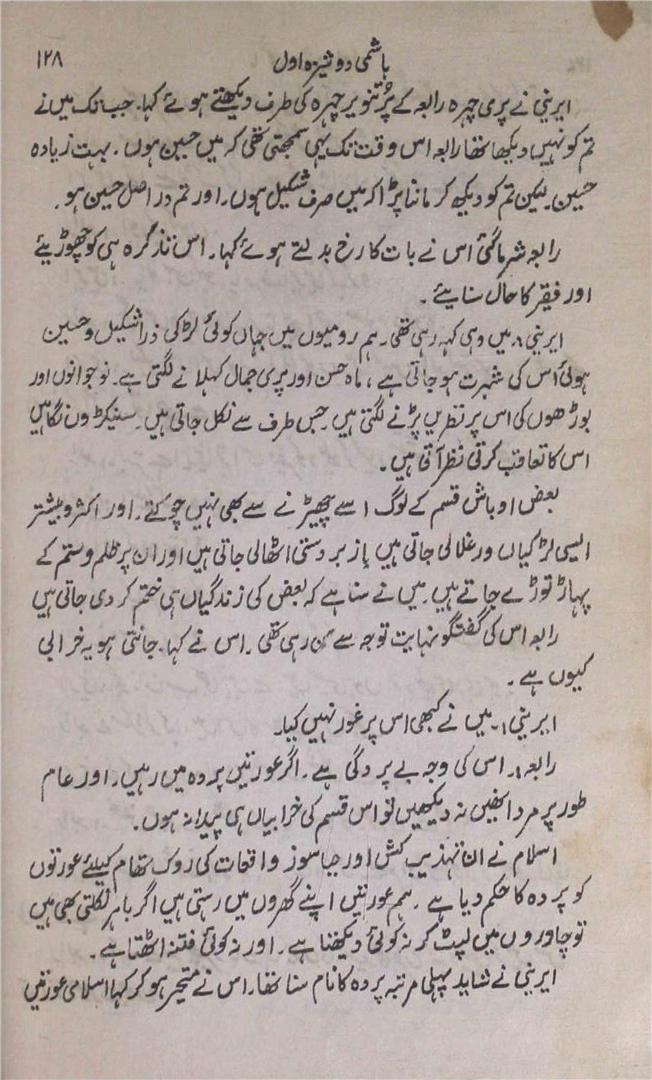 ہاشمی دوشیزہ اول ۱۲۸
ایرینی نے پری چہرہ رابعہ کے پُر تنویر چہرہ کی طرف دیکھتے ہوئے کہا۔ جب تک میں نے
تم کو نہیں دیکھا تھا رابعہ اس وقت تک یہی سمجھتی تھی کہ میں حسین ہوں۔ بہت زیادہ
حسین۔ لیکن تم کو دیکھ کر ماننا پڑا کہ میں صرف شکیل ہوں۔ اور تم در اصل حسین ہو۔
رابعہ شرما گئی اس نے بات کا رخ بدلتے ہوئے کہا۔ اس تذکرہ ہی کو چھوڑیئے
اور فقیر کا حال سنایئے۔
ایرینی ۸۔ میں وہی کہہ رہی تھی۔ ہم رومیوں میں جہاں کوئی لڑکی ذرا شکیل و حسین
ہوئی اس کی شہرت ہو جاتی ہے، ماہ حسن اور پری جمال کہلانے لگتی ہے۔ نوجوانوں اور
بوڑھوں کی اس پر نظریں پڑنے لگتی ہیں۔ جس طرف سے نکل جاتی ہیں۔ سنیکڑوں نگاہیں
اس کا تعاقب کرتی نظر آتی ہیں۔
بعض اوباش قسم کے لوگ اسے چھیڑنے سے بھی نہیں چوکتے۔ اور اکثر و بیشتر
ایسی لڑکیاں ورغلالی جاتی ہیں یا زبردستی اٹھالی جاتی ہیں اور ان پر ظلم و ستم کے
پہاڑ توڑے جاتے ہیں۔ میں نے سنا ہے کہ بعض کی زندگیاں ہی ختم کر دی جاتی ہیں
رابعہ اس کی گفتگو نہایت توجہ سے سن رہی تھی۔ اس نے کہا۔ جانتی ہو یہ خرابی
کیوں ہے۔
ایرینی ۱۔ میں نے کبھی اس پر غور نہیں کیا۔
رابعہ ۸۔ اس کی وجہ بے پردگی ہے۔ اگر عورتیں پردہ میں رہیں۔ اور عام
طور پر مرد انھیں نہ دیکھیں تو اس قسم کی خرابیاں ہی پیدا نہ ہوں۔
اسلام نے ان تہذیب کش اور حیا سوز واقعات کی روک تھام کیلئے عورتوں
کو پردہ کا حکم دیا ہے۔ ہم عورتیں اپنے گھروں میں رہتی ہیں اگر باہر نکلتی بھی ہیں
تو چادروں میں لپٹ کر نہ کوئی دیکھتا ہے۔ اور نہ کوئی فتنہ اٹھتا ہے۔
ایرینی نے شاید پہلی مرتبہ پردہ کا نام سنا تھا۔ اس نے متحیر ہو کر کہا اسلامی عورتیں